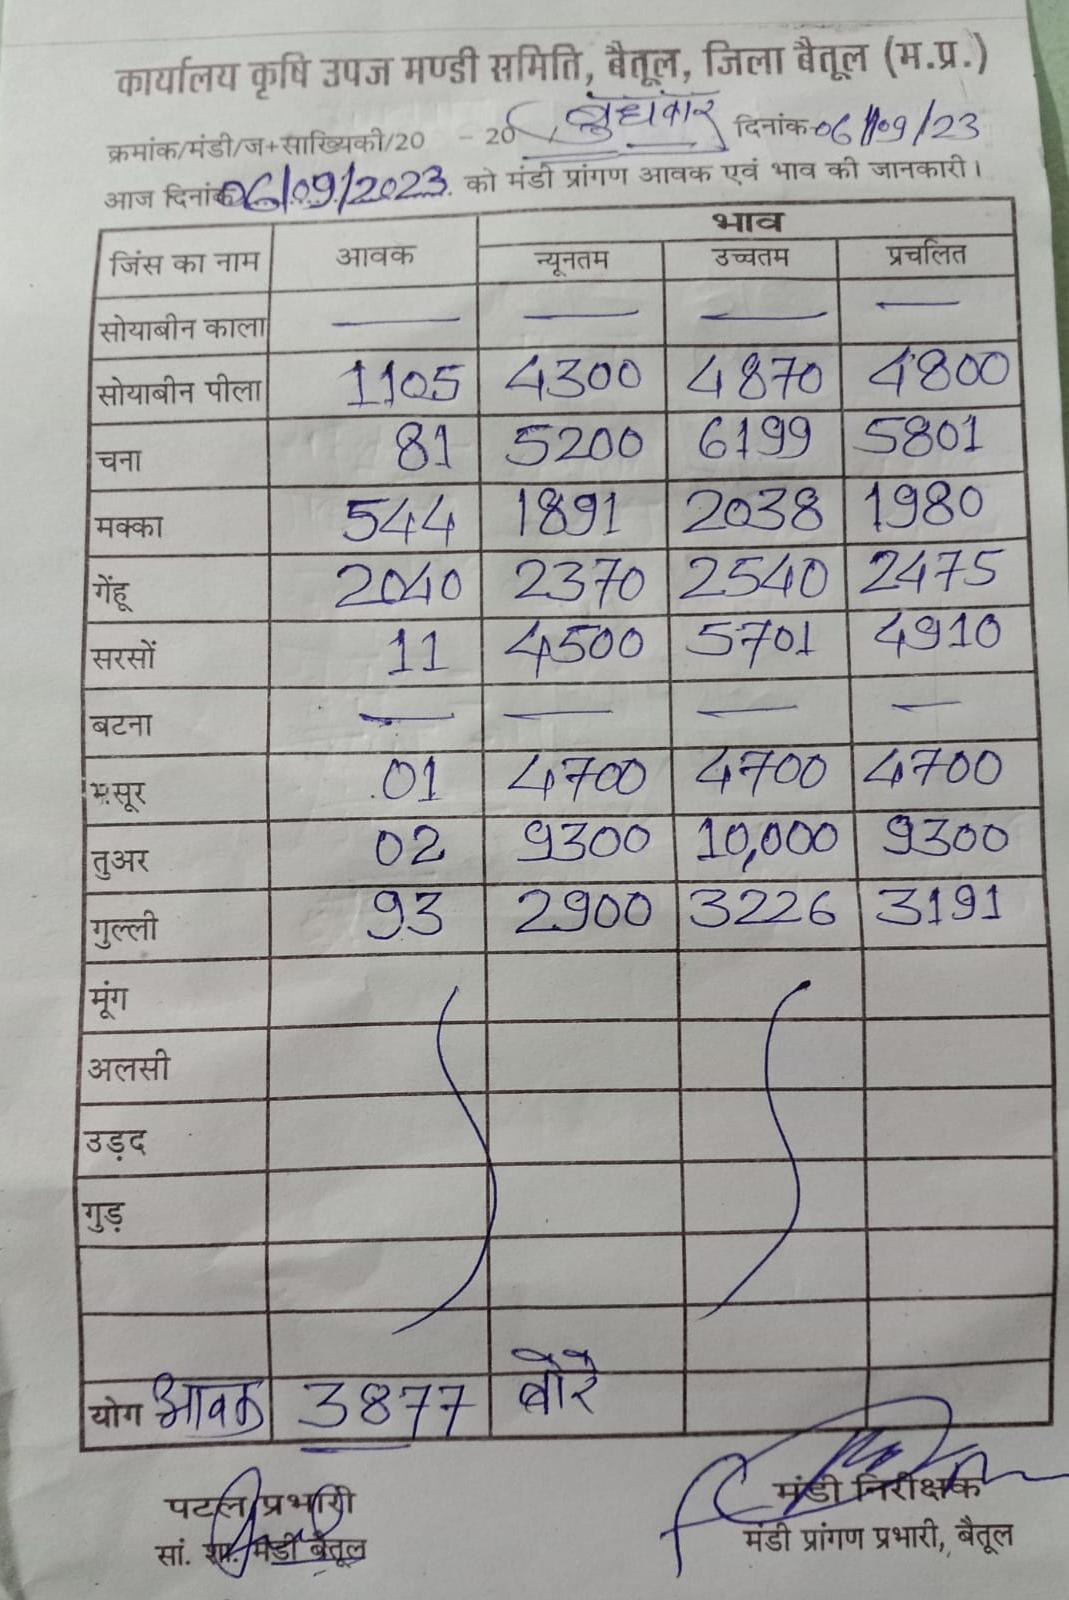 कार्यालय कृषि उपज मण्डी समिति, बैतूल, जिला बैतूल (म.प्र.)
क्रमांक/मंडी/ज+साख्यिकी/20 - 20 बुधवार दिनांक 06/09/23
आज दिनांक 06/09/2023 को मंडी प्रांगण आवक एवं भाव की जानकारी।
जिंस का नाम आवक भाव
न्यूनतम उच्चतम प्रचलित
सोयाबीन काला — — — —
सोयाबीन पीला 1105 4300 4870 4800
चना 81 5200 6199 5801
मक्का 544 1891 2038 1980
गेंहू 2040 2370 2540 2475
सरसों 11 4500 5701 4910
बटना — — — —
मसूर 01 4700 4700 4700
तुअर 02 9300 10,000 9300
गुल्ली 93 2900 3226 3191
मूंग
अलसी
उड़द
गुड़
योग आवक 3877 बोरे
पटल प्रभारी मंडी निरीक्षक
सां. शा. मंडी बैतूल मंडी प्रांगण प्रभारी, बैतूल